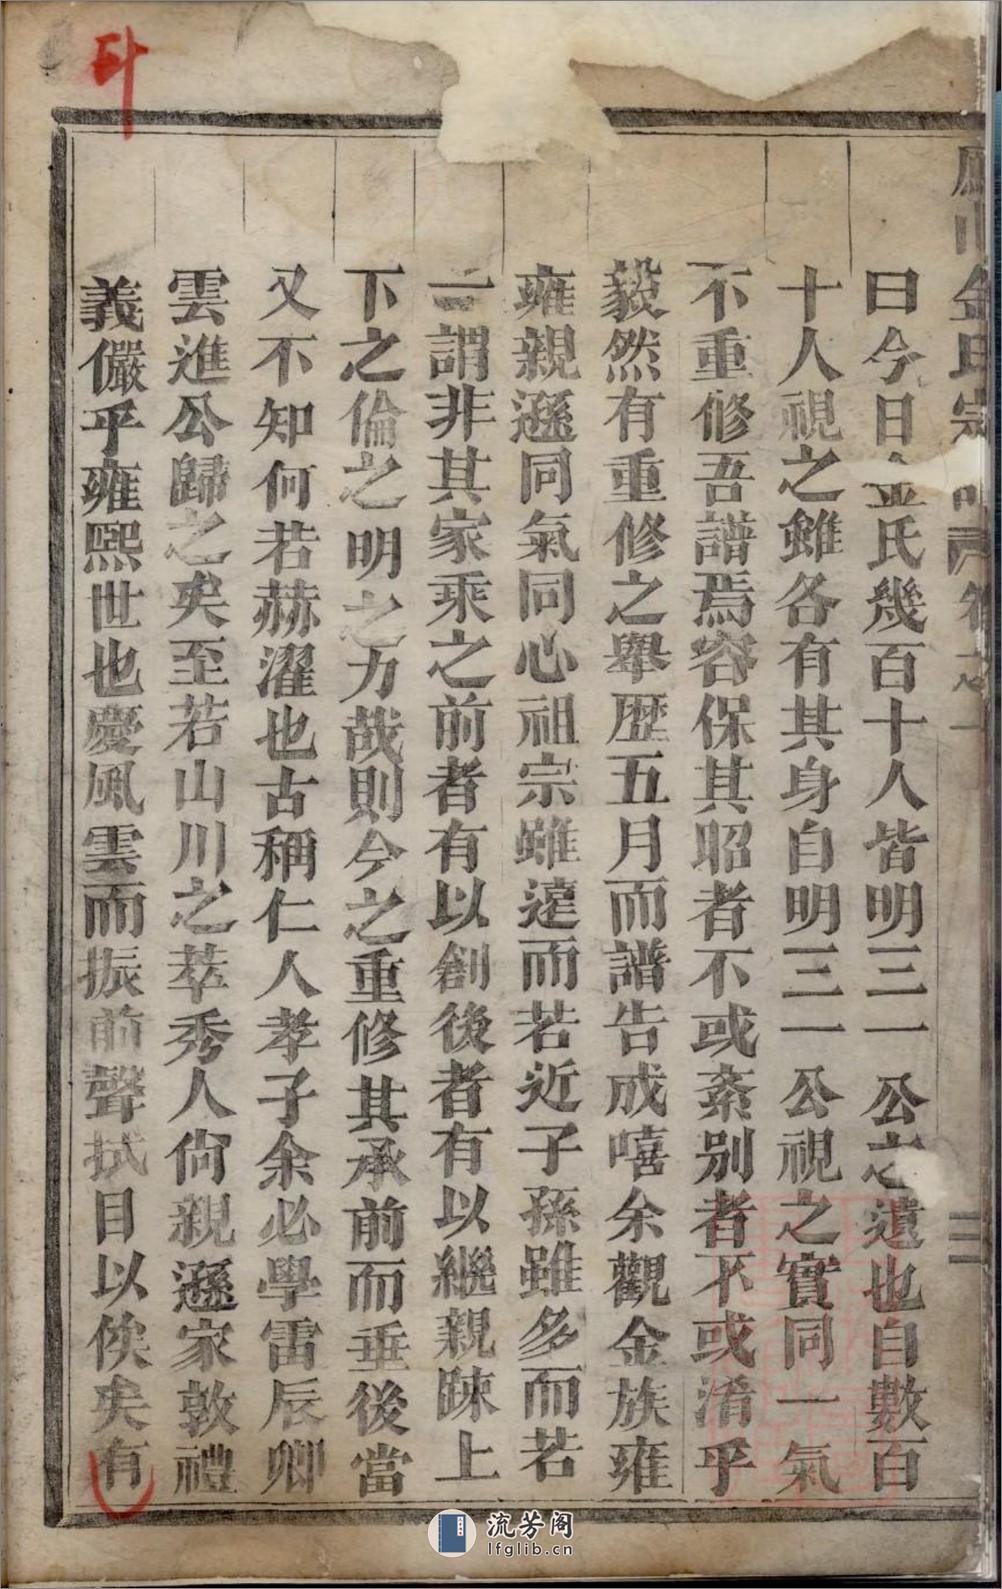 金氏宗
卷之一
三
曰今日金氏幾百十人皆明三一公之遺也自數百
十人視之雖各有其身自明三一公視之實同一氣
不重修吾譜焉容保其昭者不或紊別者不或淆乎
毅然有重修之舉歴五月而譜告成嘻余觀金族雍
雍親遜同氣同心祖宗雖遠而若近子孫雖多而若
一謂非其家乘之前者有以創後者有以繼親踈上
下之倫之明之力哉則今之重修其承前而垂後當
又不知何若赫濯也古稱仁人孝子余必學雷辰卿
雲進公歸之矣至若山川之萃秀人尙親遜家敦禮
義儼乎雍熙世也慶風雲而振前聲拭目以俟矣有
流芳阁
lfglib.cn